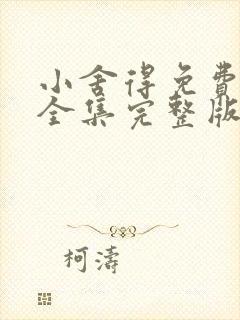 小舍得免费
全集完整版
柯濤